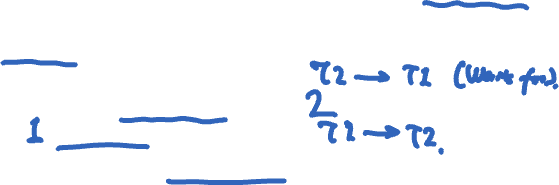 T2 → T1 (Wait for).
2
1 T1 → T2.